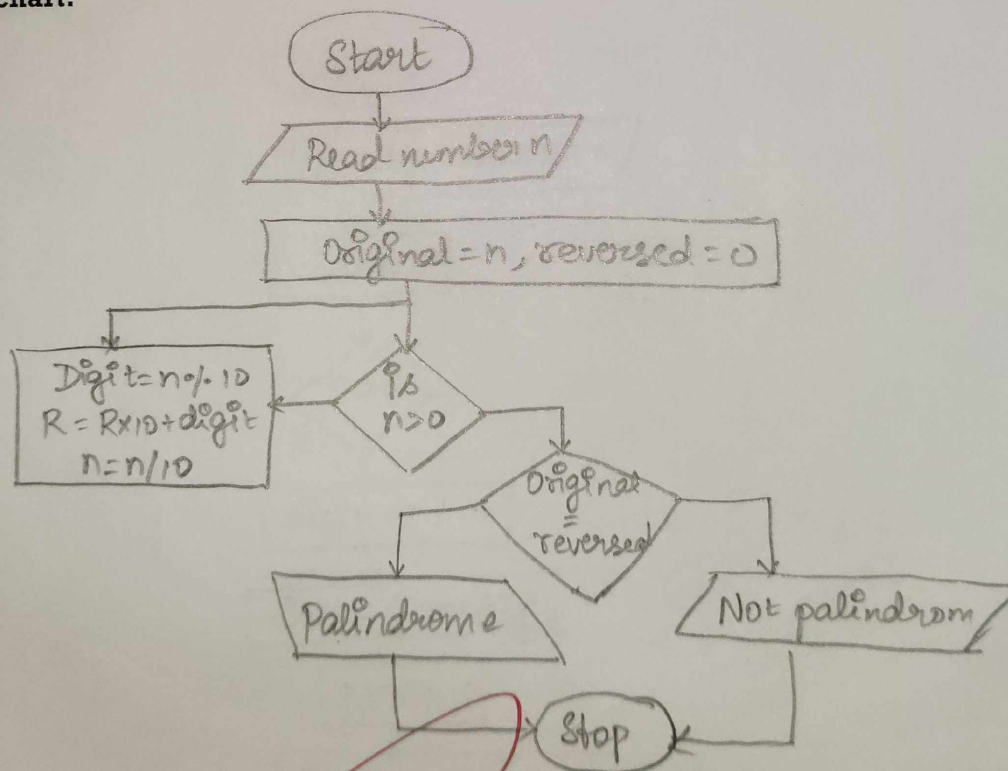 chart:
Start
Read number n
Original = n, reversed = 0
Digit = n % 10
R = R×10+digit
n = n/10
is
n>0
Original
=
reversed
Palindrome
Not palindrom
Stop